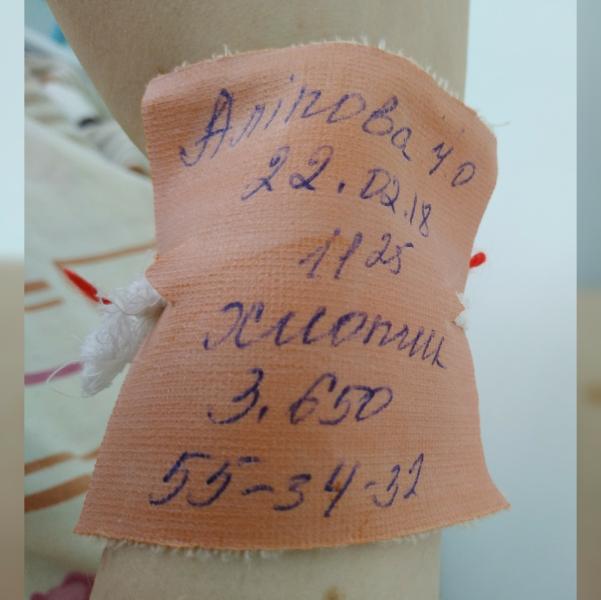 Аліпова ЧО
22.02.18
11 25
Хлопчик
3.650
55-34-32